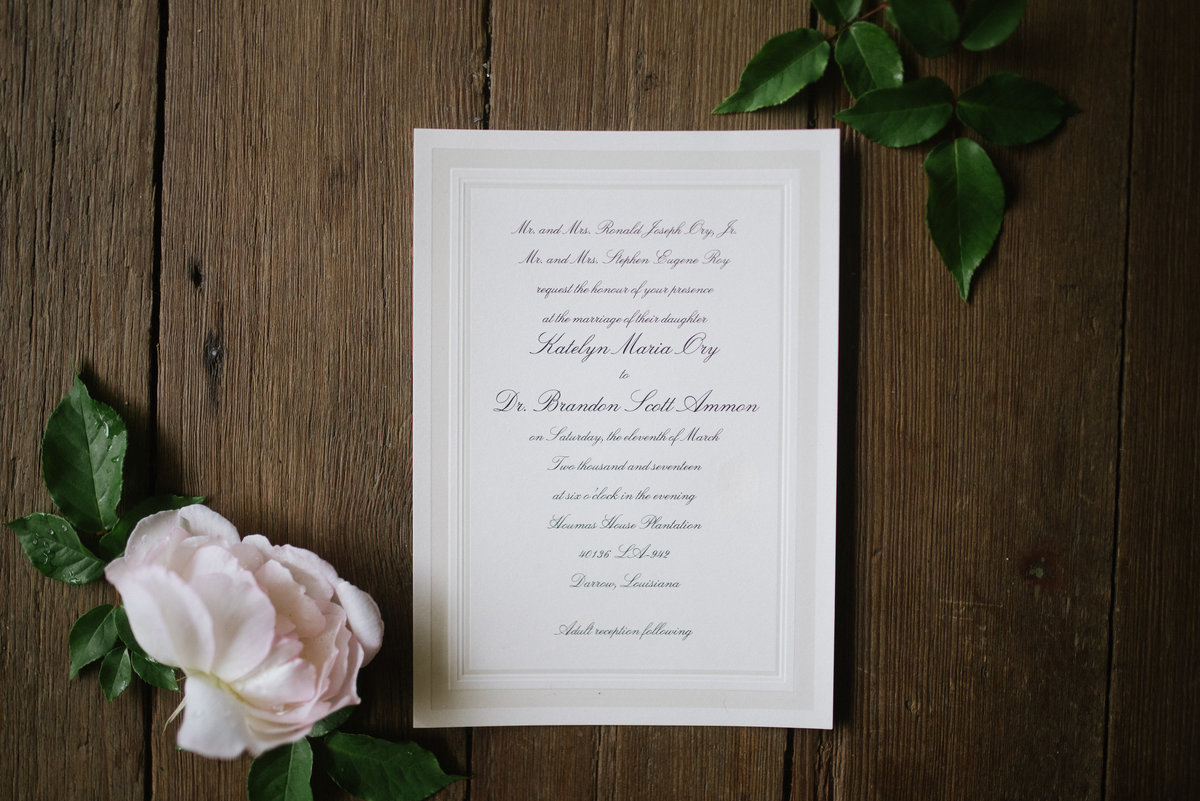 Mr. and Mrs. Ronald Joseph Ory, Jr.
Mr. and Mrs. Stephen Eugene Roy
request the honour of your presence
at the marriage of their daughter
Katelyn Maria Ory
to
Dr. Brandon Scott Ammon
on Saturday, the eleventh of March
Two thousand and seventeen
at six o'clock in the evening
Houmas House Plantation
40136 LA-942
Darrow, Louisiana
Adult reception following